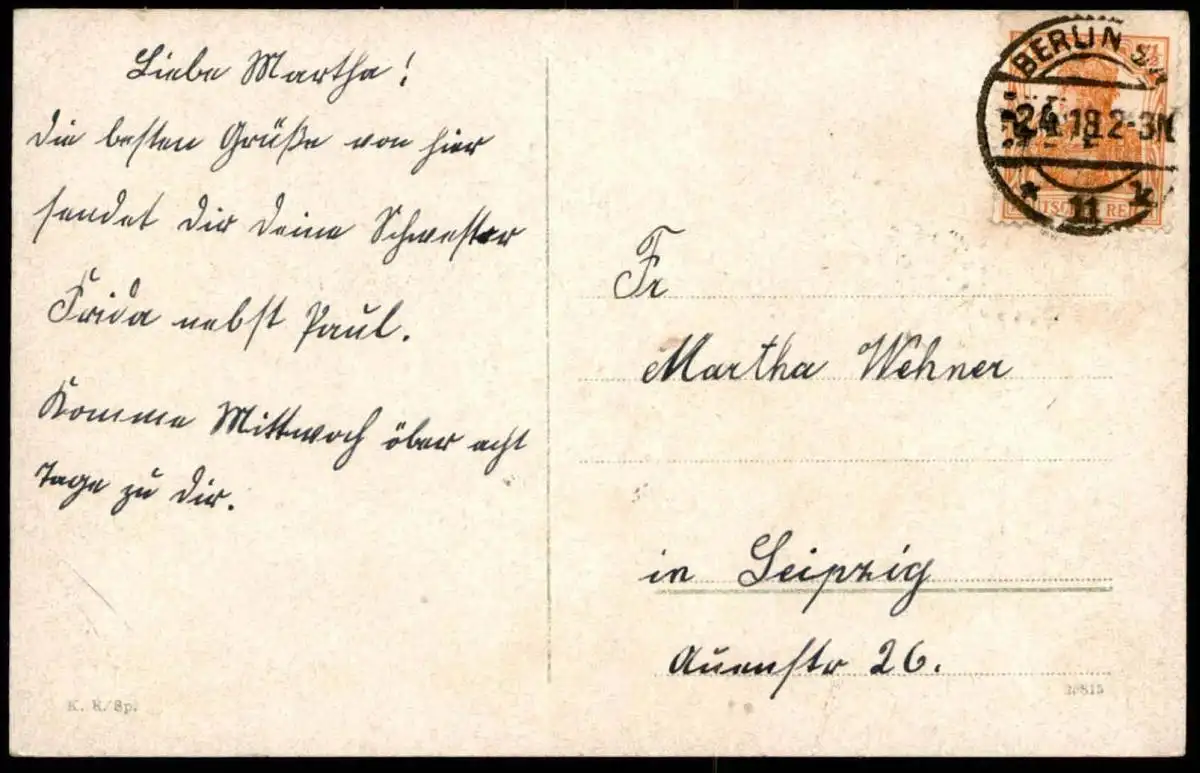 Liebe Martha!
Die besten Grüße von hier
sendet dir deine Schwester
Frida nebst Paul.
Komme Mittwoch über acht
Tage zu dir.
K. K./Sp.
BERLIN
24. 18 2-3N
* 11
DEUTSCHES REICH
Fr
Martha Wehner
in Leipzig
Auenstr 26.